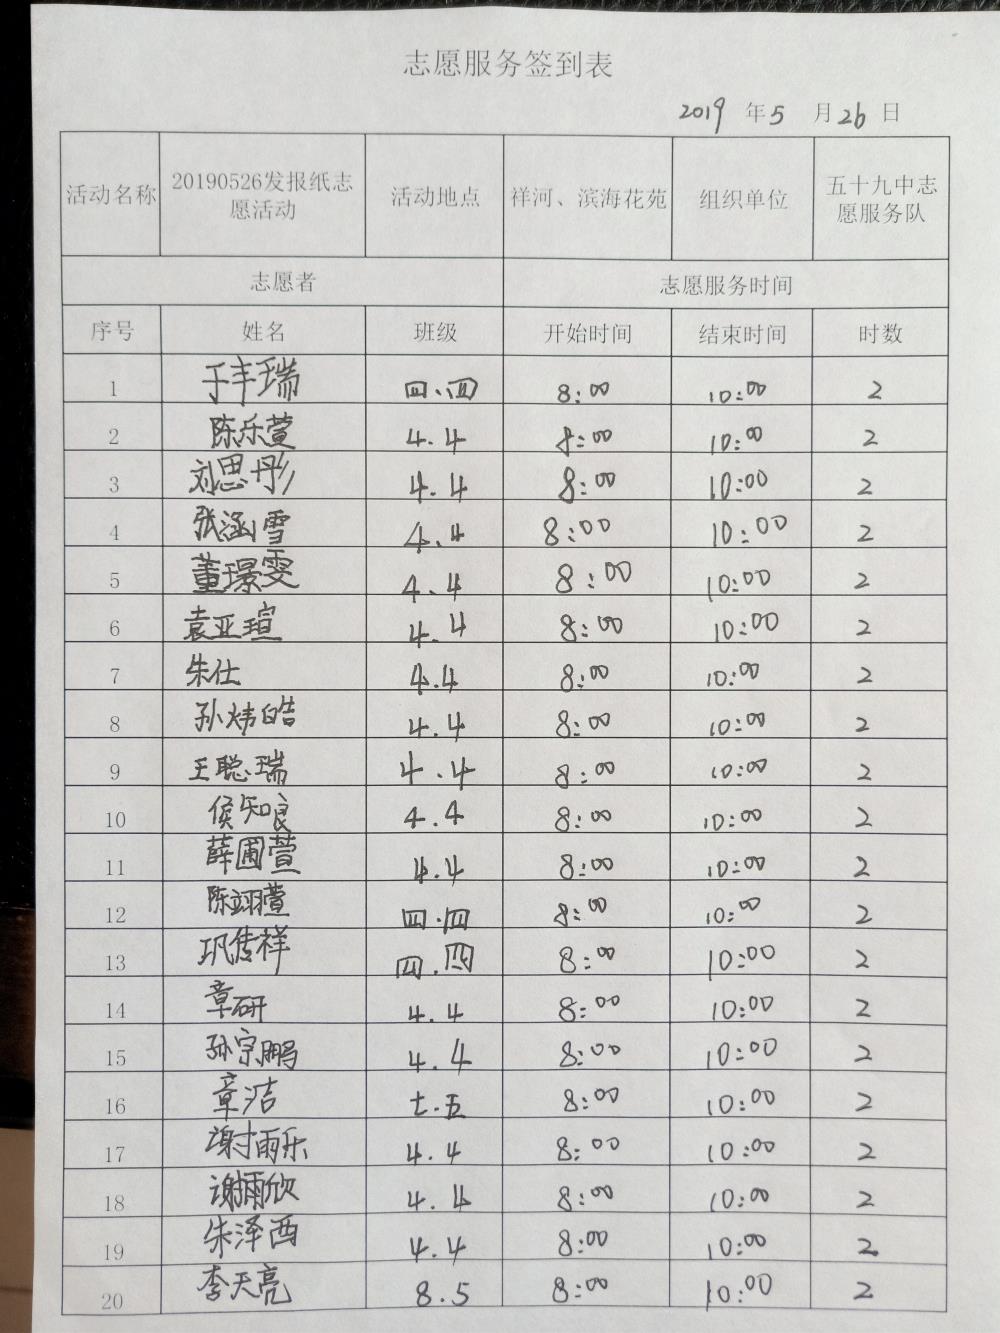 志愿服务签到表
2019 年 5 月 26 日
活动名称 20190526发报纸志愿活动 活动地点 祥河、滨海花苑 组织单位 五十九中志愿服务队
志愿者 志愿服务时间
序号 姓名 班级 开始时间 结束时间 时数
1 于丰瑞 四.四 8:00 10:00 2
2 陈乐萱 4.4 8:00 10:00 2
3 刘思彤 4.4 8:00 10:00 2
4 张涵雪 4.4 8:00 10:00 2
5 董璟雯 4.4 8:00 10:00 2
6 袁亚瑄 4.4 8:00 10:00 2
7 朱仕 4.4 8:00 10:00 2
8 孙炜皓 4.4 8:00 10:00 2
9 王聪瑞 4.4 8:00 10:00 2
10 侯知良 4.4 8:00 10:00 2
11 薛圃萱 4.4 8:00 10:00 2
12 陈翊萱 四.四 8:00 10:00 2
13 巩传祥 四.四 8:00 10:00 2
14 章研 4.4 8:00 10:00 2
15 孙宗鹏 4.4 8:00 10:00 2
16 章洁 七.五 8:00 10:00 2
17 谢雨乐 4.4 8:00 10:00 2
18 谢雨欣 4.4 8:00 10:00 2
19 朱泽西 4.4 8:00 10:00 2
20 李天亮 8.5 8:00 10:00 2